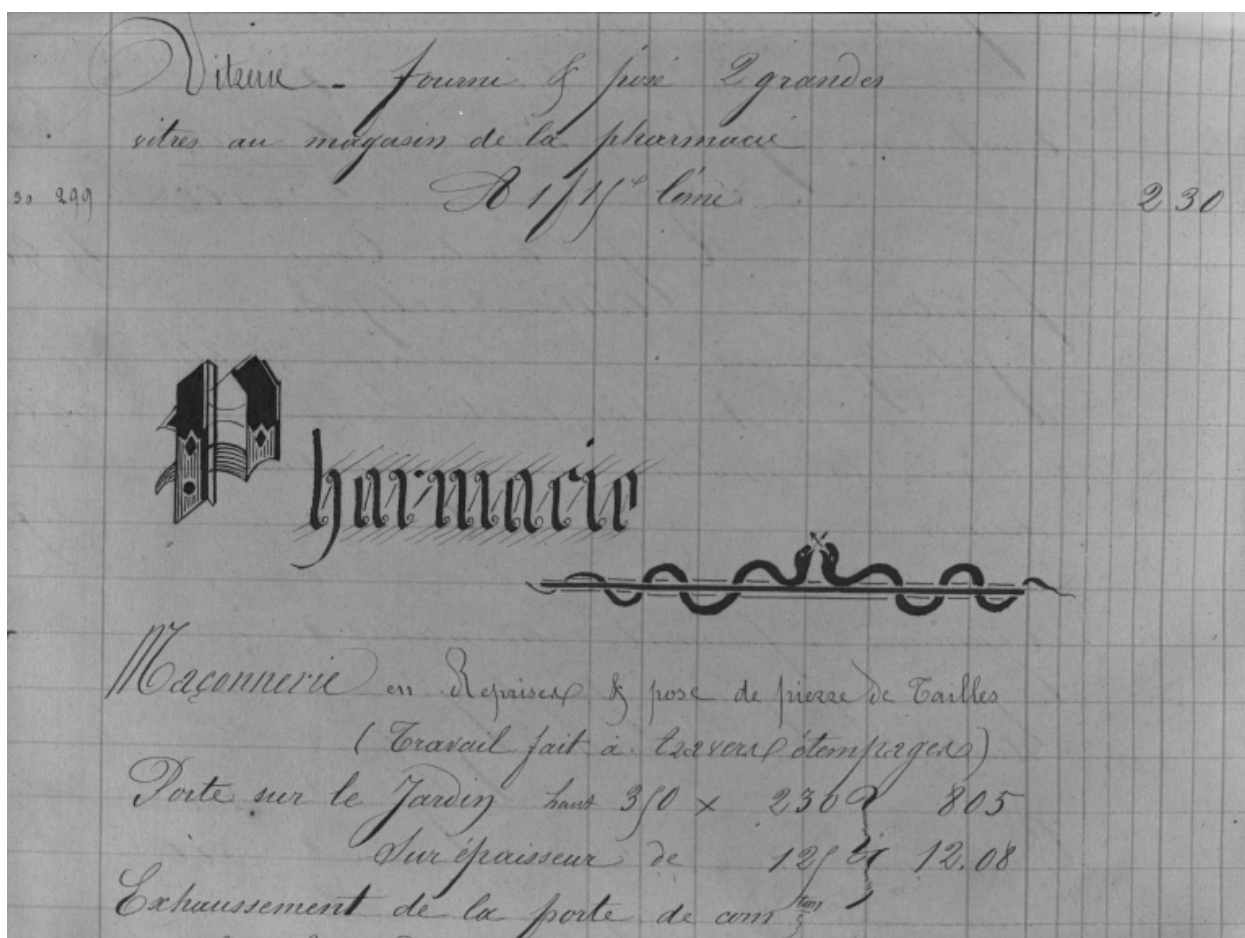 Vitrerie - fourni & posé 2 grandes
vitres au magasin de la pharmacie
50 299 A 1f 15c l'une 2 30
Pharmacie
Maçonnerie en Reprises & pose de pierre de Tailles
(Travail fait à travers étempages)
Porte sur le Jardin haut 350 x 230 805
Sur épaisseur de 125 12.08
Exhaussement de la porte de com